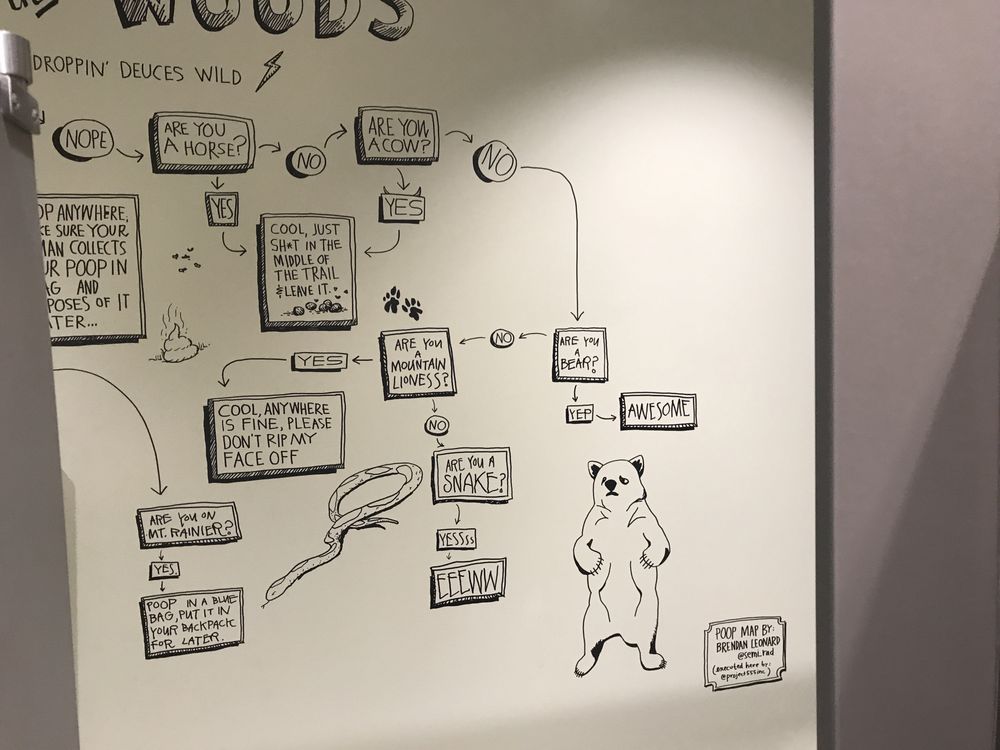 WOODS
DROPPIN' DEUCES WILD
NOPE
ARE YOU
A HORSE?
NO
ARE YOU
A COW?
NO
YES
YES
COOL, JUST
SH*T IN THE
MIDDLE OF
THE TRAIL
& LEAVE IT.
ANYWHERE,
SURE YOUR
COLLECTS
POOP IN
AND
OF IT
ARE YOU
A
BEAR?
NO
YEP
AWESOME
ARE YOU
A
MOUNTAIN
LIONESS?
YES
COOL, ANYWHERE
IS FINE, PLEASE
DON'T RIP MY
FACE OFF
NO
ARE YOU A
SNAKE?
YESSSS
EEEWW
ARE YOU ON
MT. RAINIER?
YES.
POOP IN A BLUE
BAG, PUT IT IN
YOUR BACKPACK
FOR LATER.
POOP MAP BY:
BRENDAN LEONARD
@semi_rad
(executed here by:
@project555inc.)